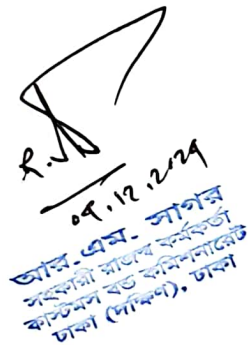 ০৭.১২.২০২৭
আর.এম. সাগর
সহকারী রাজস্ব কর্মকর্তা
কাস্টমস বন্ড কমিশনারেট
ঢাকা (দক্ষিণ), ঢাকা